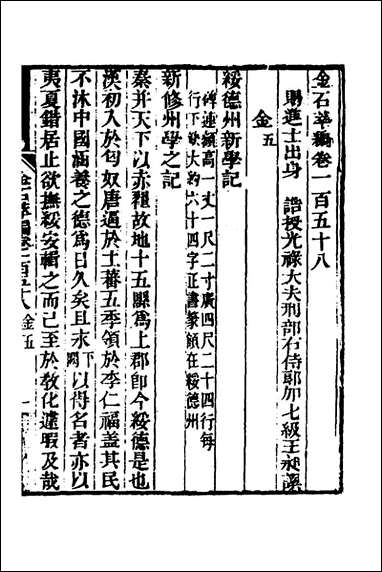 金石萃編卷一百五十八
賜進士出身 誥授光祿大夫刑部右侍郎加七級王昶譔
金五
綏德州新學記
碑連額高一丈一尺二寸廣四尺二十四行每
行下缺大約六十四字正書篆額在綏德州
新修州學之記
秦并天下以赤翟故地十五縣爲上郡卽今綏德是也
漢初入於匈奴唐逼於土蕃五季領於李仁福蓋其民
不沐中國涵養之德爲日久矣且末下闕以得名者亦以
夷夏錯居止欲撫綏安輯之而已至於敎化遑暇及哉
金石萃編卷一百五十八 金五 一